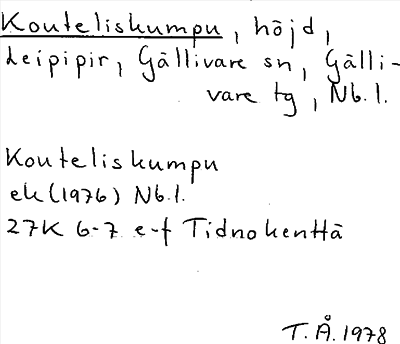 Kouteliskumpu, höjd,
Leipipir, Gällivare sn, Gälli-
vare tg, Nb.l.
Kouteliskumpu
ek (1976) Nb.l.
27K 6-7 e-f Tidnokenttä
T.Å. 1978